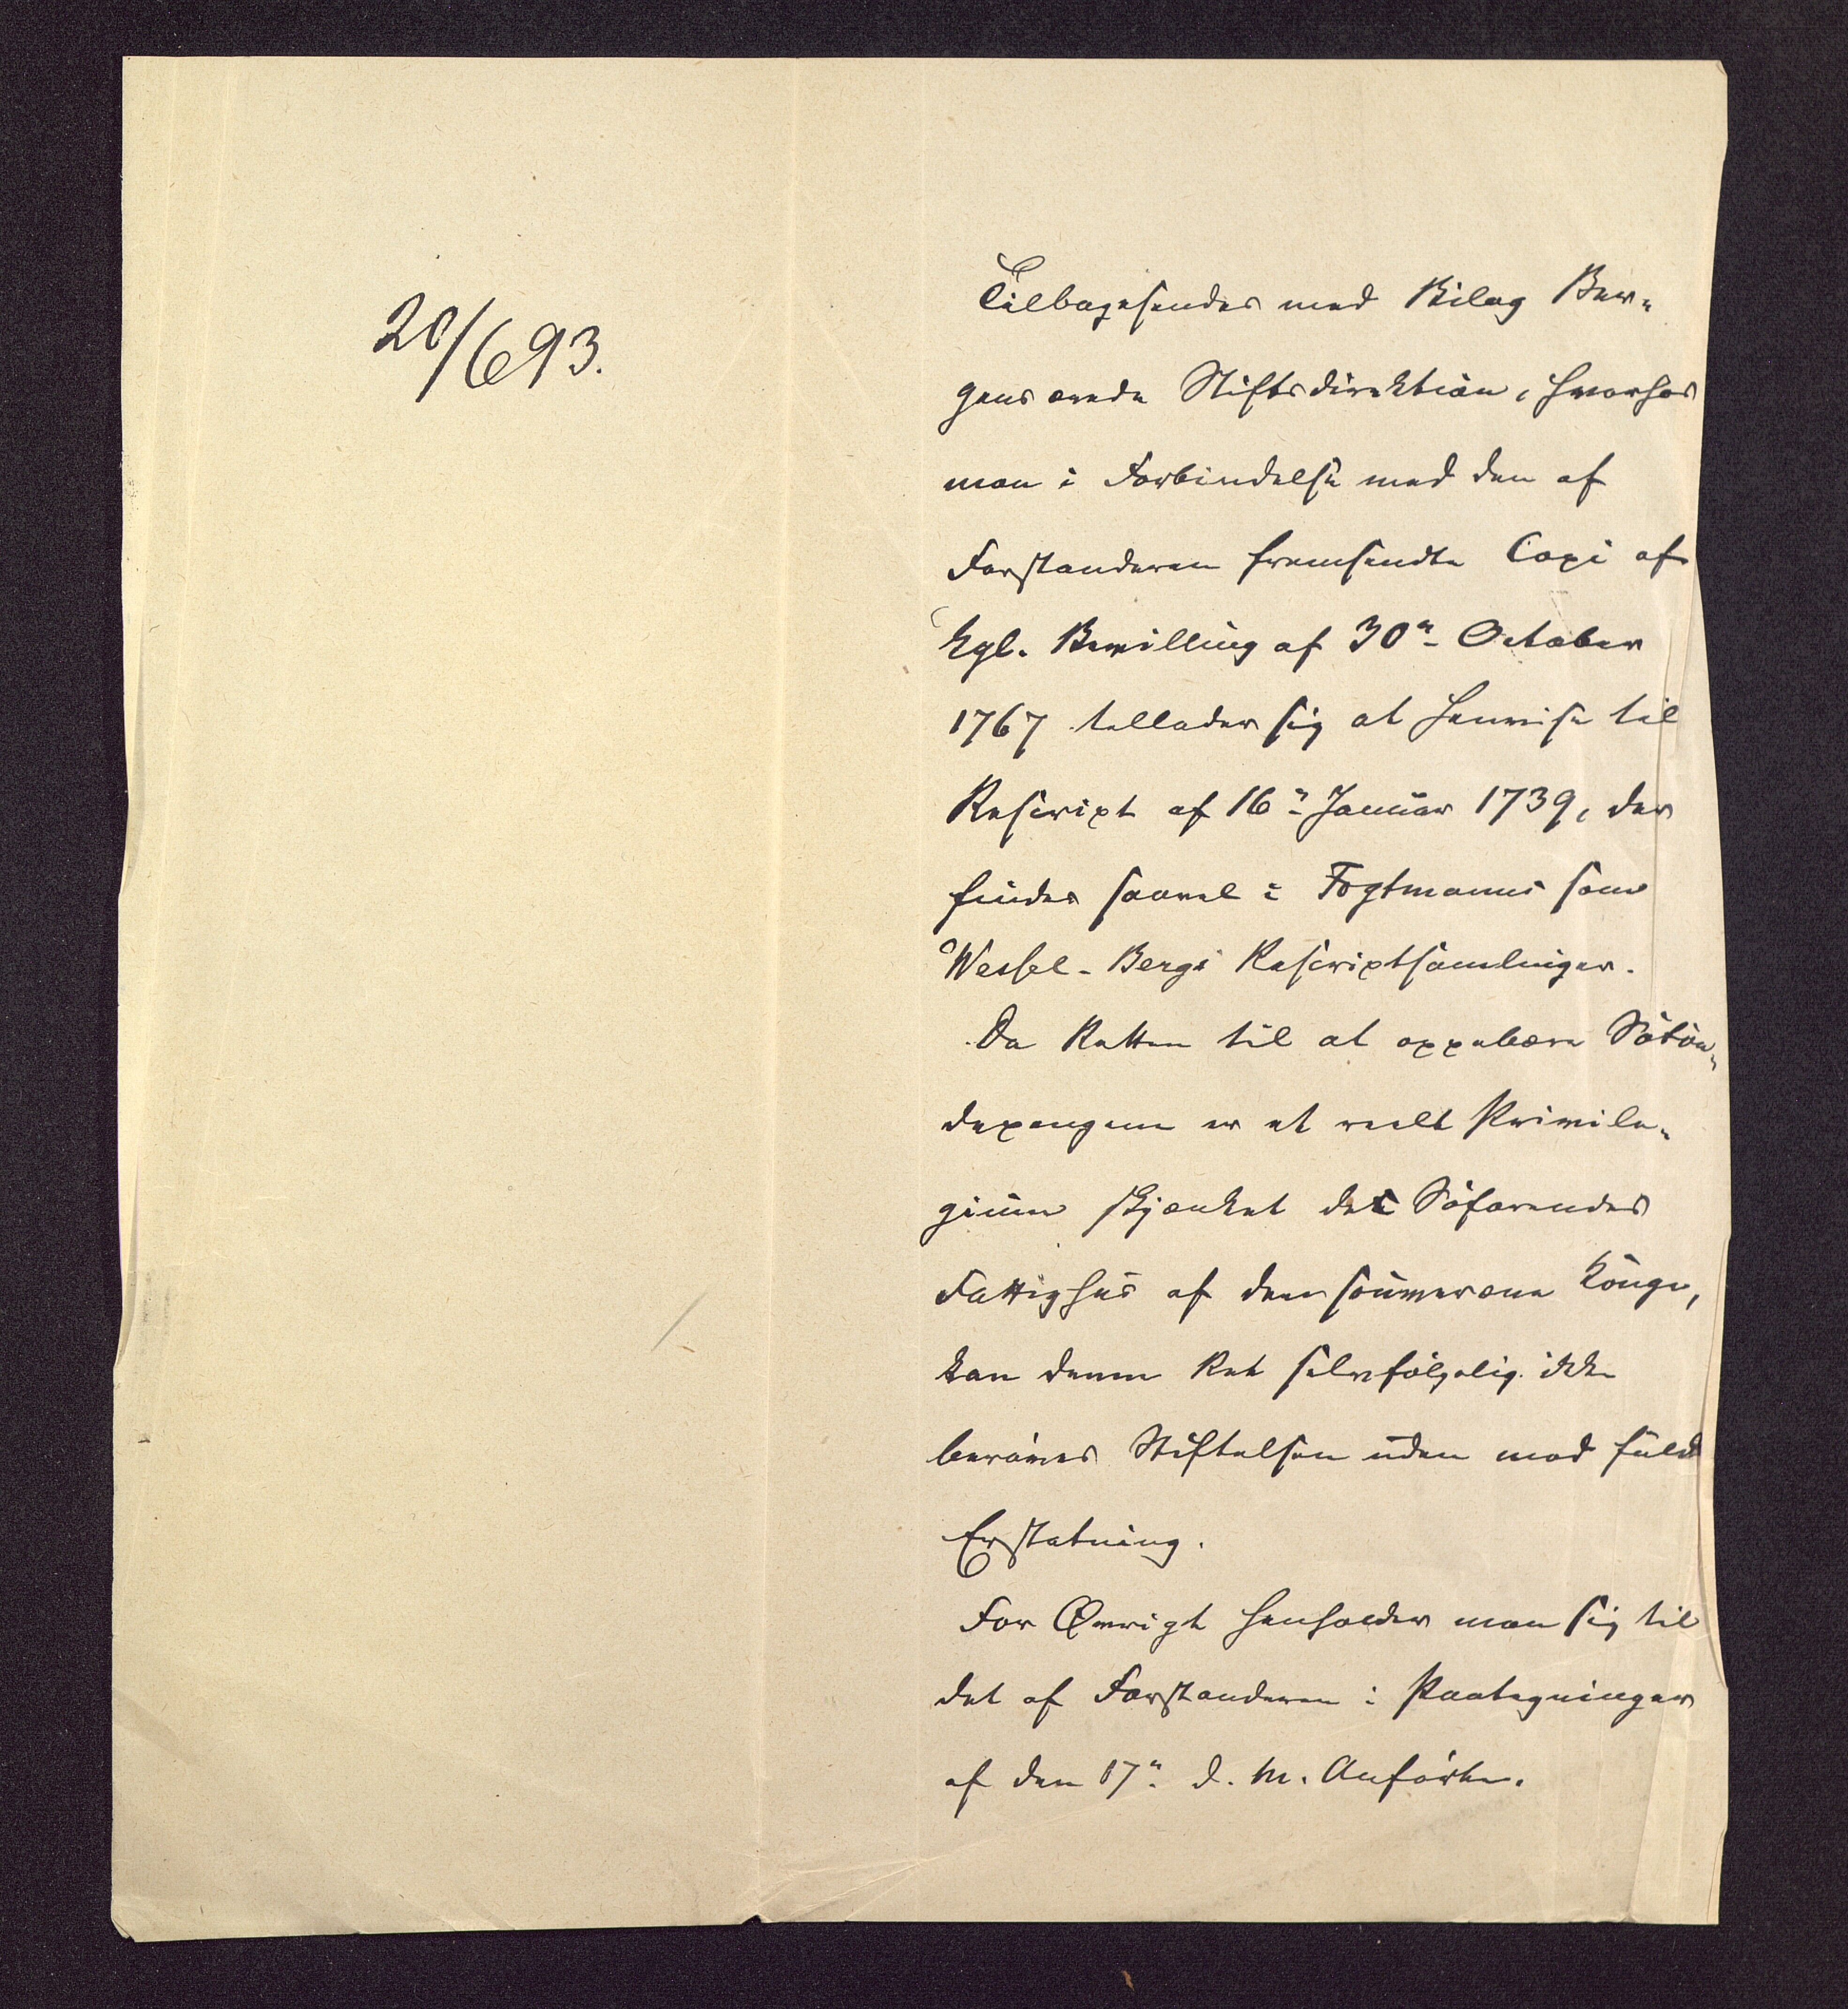 20/6 93.
Tilbagesendes med Bilag Ber-
gens ærede Stiftsdirektion, hvorhos
man i Forbindelse med den af
Forstanderen fremsendte Copi af
kgl. Bevilling af 30" October
1767 tillader sig at henvise til
Rescript af 16" Januar 1739, der
findes saavel i Fogtmanns som
Wessel-Bergs Rescriptsamlinger.
Da Retten til at oppebære Sötön-
depengene er et reelt Privile-
gium skjænket de Söfarendes
Fattighus af den souveræne Konge,
kan denne Ret selvfölgelig ikke
beröves Stiftelsen uden mod fuld
Erstatning.
For Øvrigt henholder man sig til
det af Forstanderen i Paategninger
af den 17" d. M. Anförte.